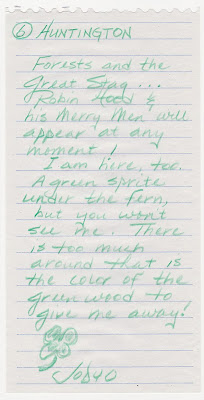 ⑥ HUNTINGTON
Forests and the
Great Stag ...
Robin Hood &
his Merry Men will
appear at any
moment!
I am here, too.
A green sprite
under the fern,
but you won't
see me. There
is too much
around that is
the color of the
greenwood to
give me away!